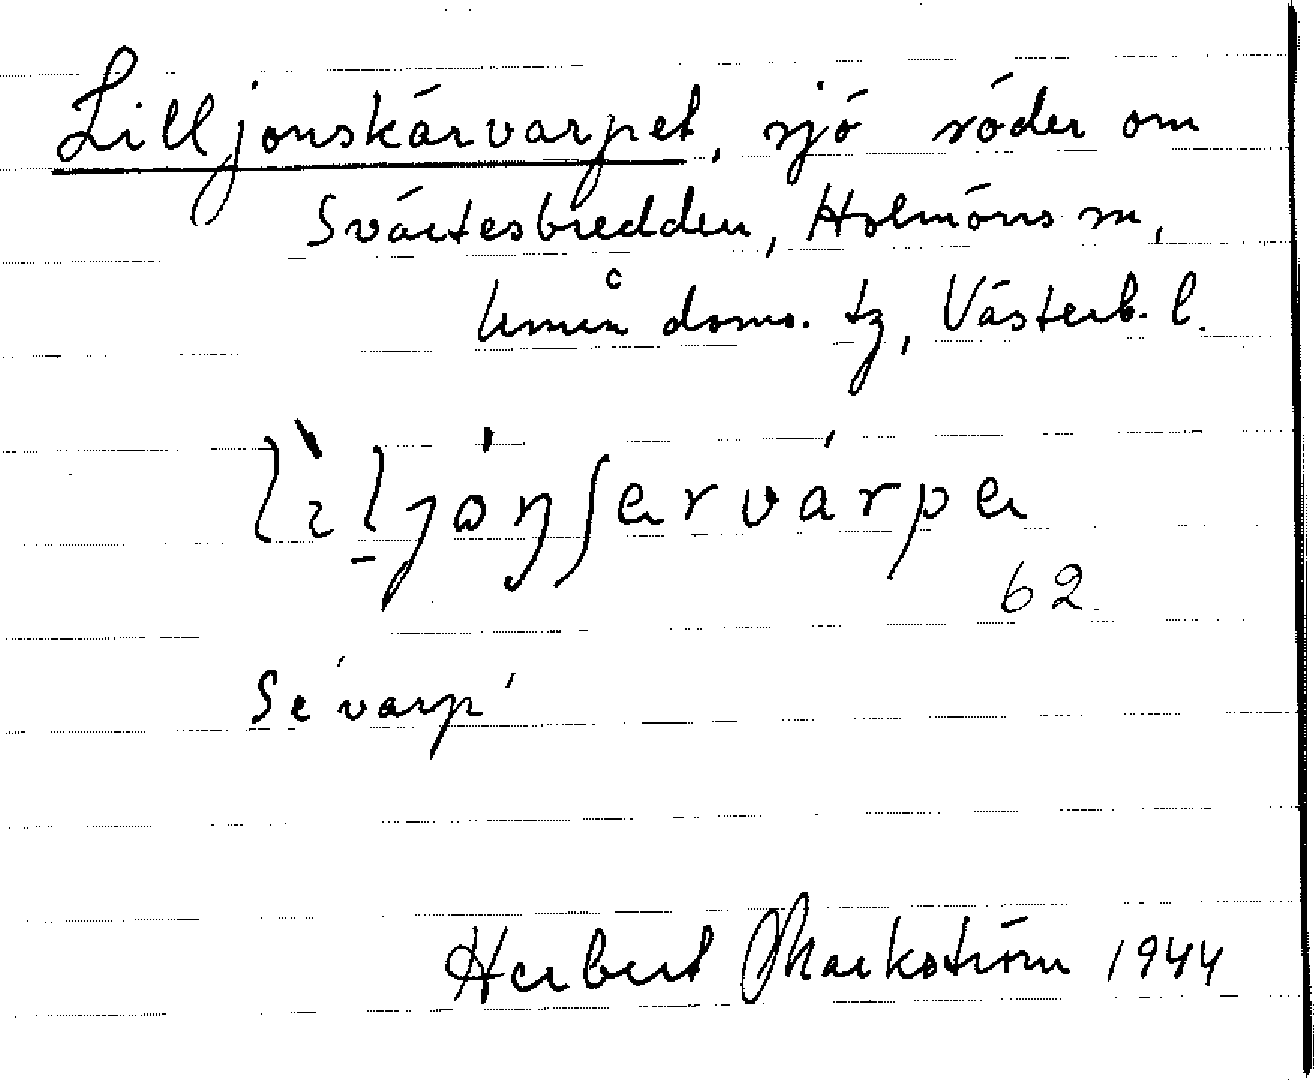 Lilljonskärvarpet, sjö söder om
Svärtesbredden, Holmöns sn,
Umeå doms. tg, Västerb. l.
62
Se varp
Herbert Markström 1944